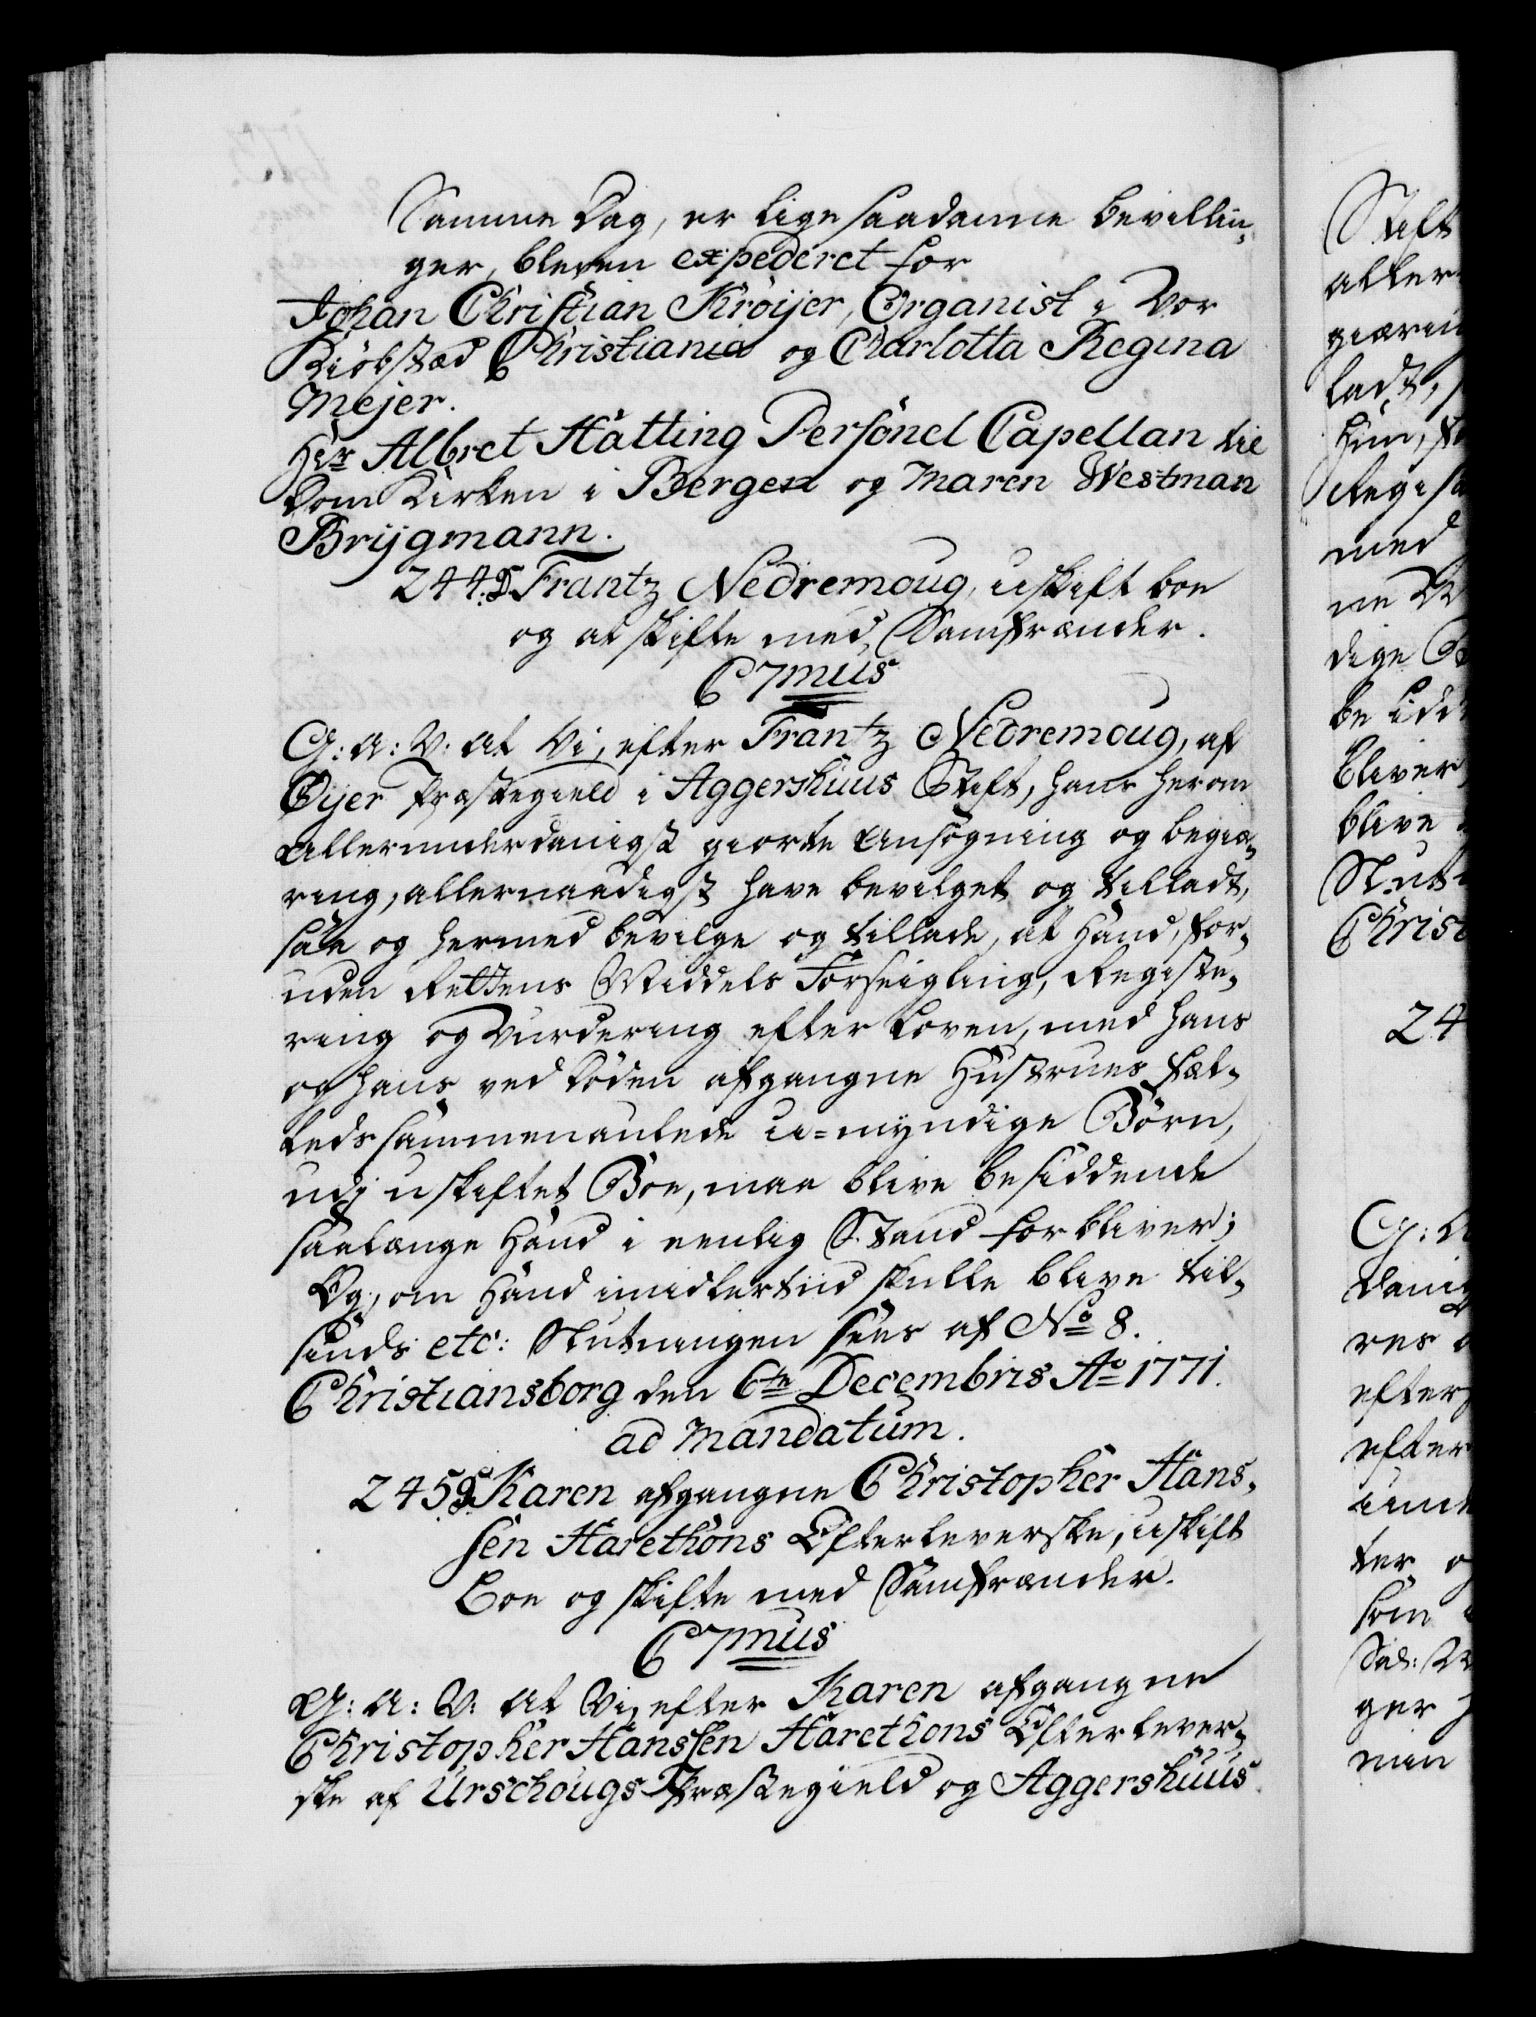 Samme Dag, er lige saadanne bevillin-
ger, bleven expederet for
Johan Christian Krøijer, Organist i Vor
Kiøbstæd Christiania og Charlotta Regina
Mejer.
Her Albret Hatting Personel Capellan til
Dom Kirken i Bergen og Maren Westman
Brijgmann.
244. Frantz Nedremoug, uskift boe
og at skifte med Samfrænder.
C7mus
G: A: V: At Vi, efter Frantz Nedremoug, af
Øijer Præstegield i Aggershuus Stift, hans herom
allerunderdanigst giorte Ansøgning og begiæ-
ring, allernaadigst have bevilget og tilladt,
saa og hermed bevilge og tillade, at Hand, for-
uden Rettens Middels Forseigling, Registe-
ring og Vurdering efter Loven, med hans
og hans ved døden afgangne Hustrues fæl-
leds sammenavlede u-myndige Børn,
udj uskiftet Boe, maa blive besiddende
saalænge Hand i eenlig Stand forbliver;
Og, om Hand imidlertiid skulle blive til-
sinds etc: Slutningen sees af No 8.
Christiansborg den 6te Decembris Ao 1771.
ad Mandatum.
245. Karen afgangne Christopher Hans-
sen Harethons Efterleverske, uskift
Boe og skifte med Samfrænder.
C7mus
G: A: V: At Vi, efter Karen afgangne
Christopher Hanssen Harethons Efterlever-
ske af Urschougs Præstegield og Aggershuus
Stift
aller
giærin
ladt,
Hun,
Regis
med
ne
dige
be sidd
bliver
blive
Slutn
Christ
24
G: A
danig
res
efter
efter
umÿ
ter
som
ger
min